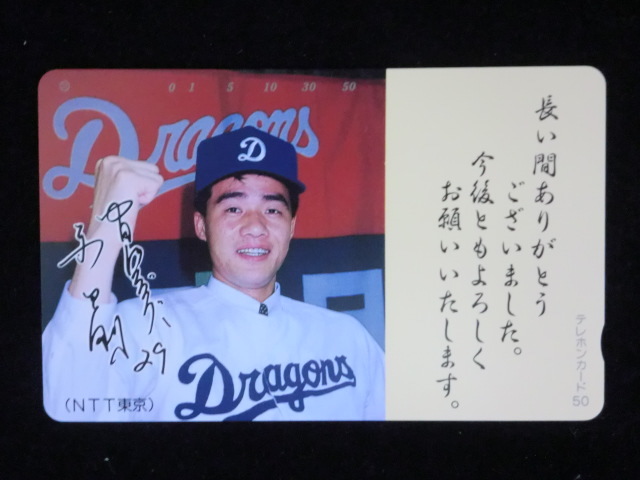 0 1 5 10 30 50
Dragons
D
Dragons
29
(NTT東京)
長い間ありがとう
ございました。
今後ともよろしく
お願いいたします。
テレホンカード50